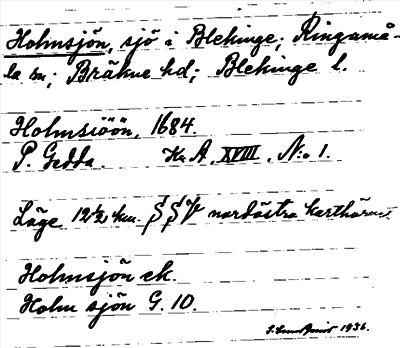 Holmsjön, sjö i Blekinge; Ringamå-
la sn; Bräkne hd; Blekinge l.
Holmsiöön, 1684.
P. Gedda. Kr. A. XVIII. N:o 1.
Läge 12½ km. SSV nordöstra karthörnet
Holmsjön ek.
Holm sjön G. 10.
1936.